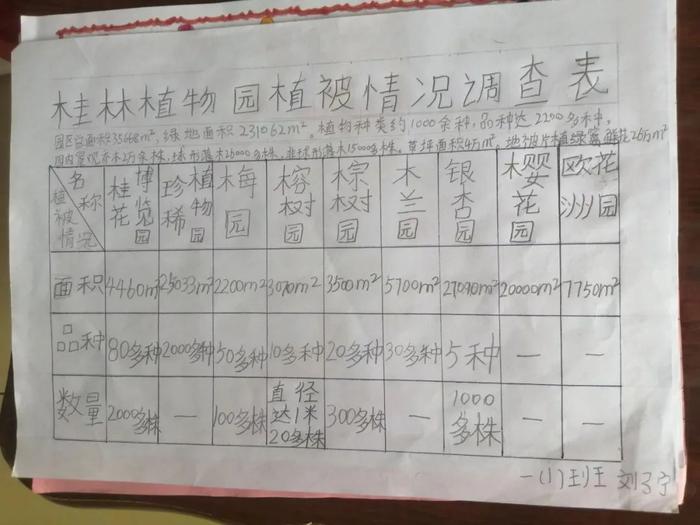 桂林植物园植被情况调查表
园区总面积35668m²,绿地面积231062m²,植物种类约1000余种,品种达2200多种,
园内景观乔木2万余株,球形灌木26000多株,非球形灌木15000多株,草坪面积4万m²,地被片植绿篱鲜花26万m²
名称 植被情况 桂花博览园 珍稀植物园 梅园 榕树园 棕树园 木兰园 银杏园 樱花园 欧洲花园
面积 4460m² 25033m² 2200m² 3070m² 3500m² 5700m² 27090m² 20000m² 7750m²
品种 80多种 2000多种 50多种 10多种 20多种 30多种 5种 — —
数量 2000多株 — 100多株 直径达1米20多株 300多株 — 1000多株 — —
一(1)班 刘子宁